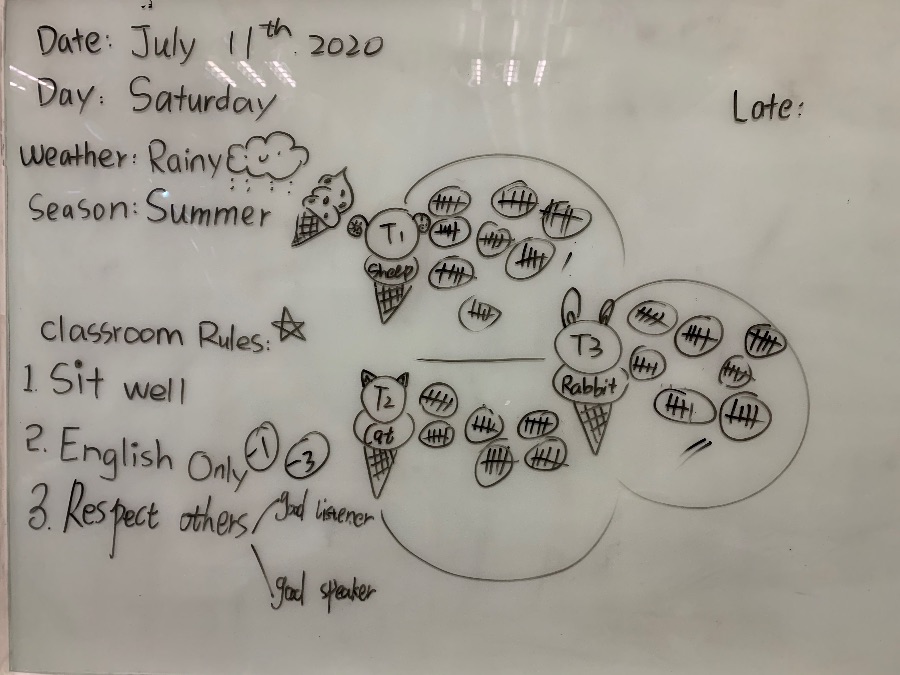 Date: July 11th. 2020
Day: Saturday
Late:
Weather: Rainy
Season: Summer
T1
Sheep
Classroom Rules:
T3
Rabbit
1. Sit well
T2
Cat
2. English Only -1 -3
3. Respect others good listener
good speaker